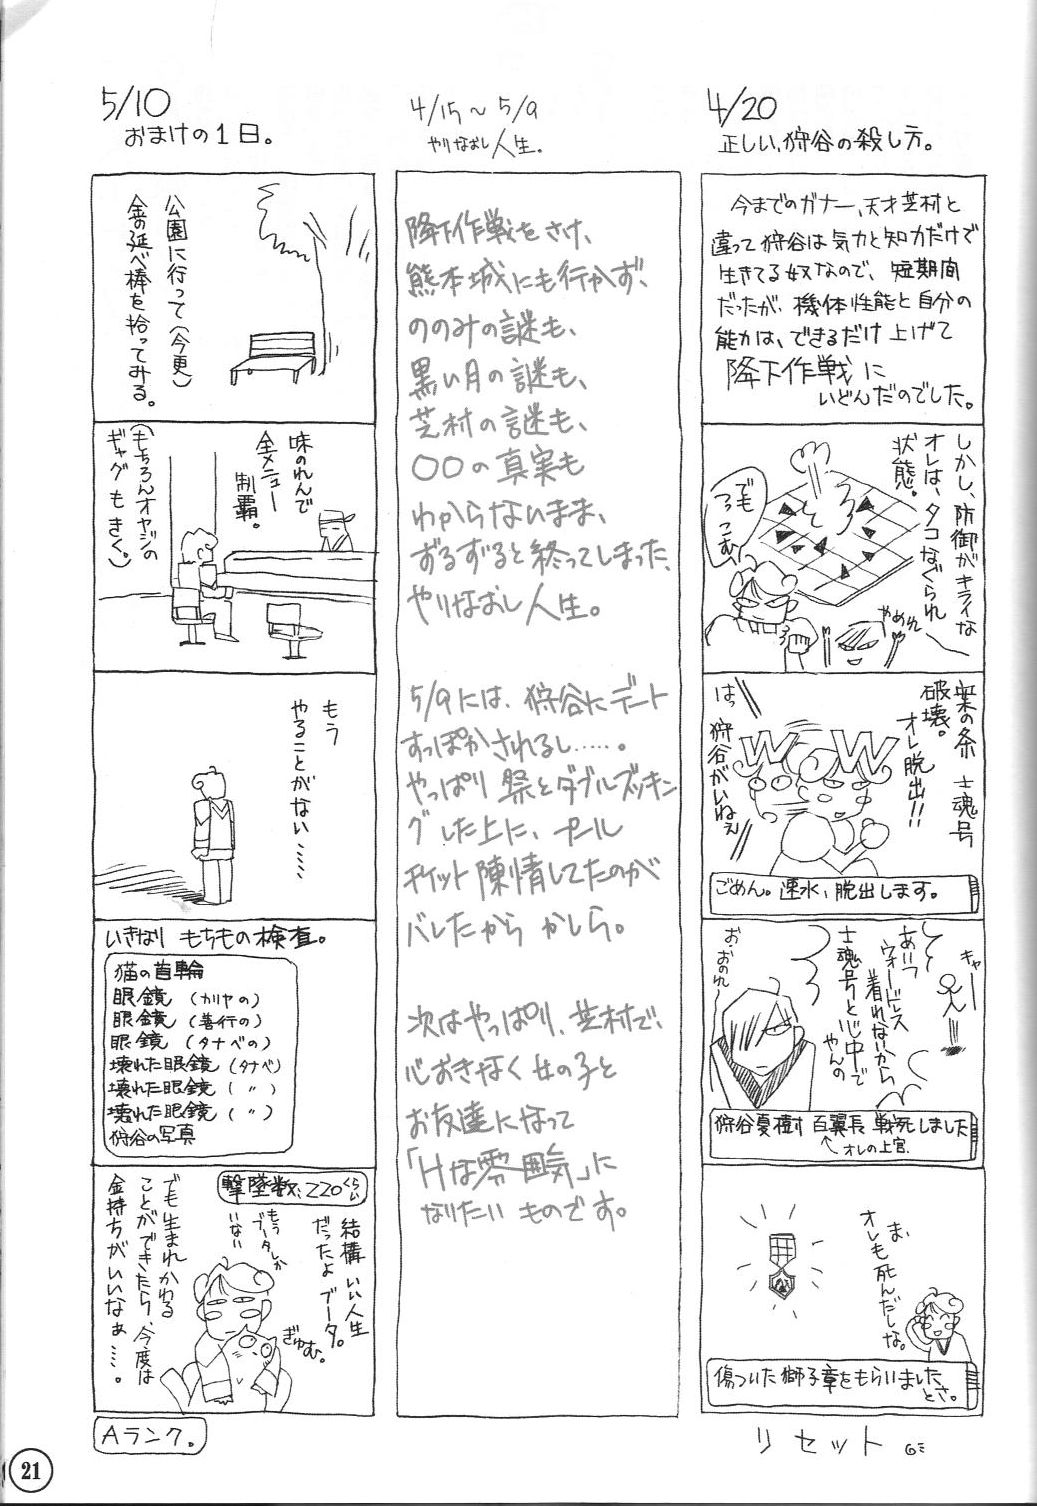 4/20
正しい、狩谷の殺し方。
今までのガナー、天才芝村と
違って狩谷は気力と知力だけで
生きてる奴なので、短期間
だったが、機体性能と自分の
能力は、できるだけ上げて
降下作戦に
いどんだのでした。
しかし、防御がキライな
オレは、タコなぐられ
状態。
でも
つっこむ
やめれ
士魂号
破壊。
オレ脱出!!
WOW
はっ
狩谷がいねぇ
ごめん。速水、脱出します。
キャー
あいつ
ウォードレス
着れないから
士魂号といじ中で
やんの
お・おのれー
狩谷夏樹 百翼長 戦死しました
↑オレの上官.
ま、
オレも死んだしな。
傷ついた獅子章をもらいました
とさ。
リセット
4/15〜5/9
やりなおし人生.
降下作戦をさけ、
熊本城にも行かず、
ののみの謎も、
黒い月の謎も、
芝村の謎も、
〇〇の真実も
わからないまま、
ずるずると終ってしまった、
やりなおし人生。
5/9には、狩谷にデート
すっぽかされるし……。
やっぱり 祭とダブルブッキン
グした上に、プール
チケット陳情してたのが
バレたから かしら。
次はやっぱり、芝村で、
心おきなく女の子と
お友達になって
「Hな雰囲気」に
なりたい ものです。
5/10
おまけの1日。
公園に行って(今更)
金の延べ棒を拾ってみる。
味のれんで
全メニュー
制覇。
(もちろんオヤジの
ギャグもきく。)
もう
やることがない……
いきなり もちもの検査。
猫の首輪
眼鏡 (カリヤの)
眼鏡 (善行の)
眼鏡 (タナベの)
壊れた眼鏡 (タナベ)
壊れた眼鏡 ( 〃 )
壊れた眼鏡 ( 〃 )
狩谷の写真
撃墜数、220くらい
結構 いい人生
だったよ ブータ。
もう
ブータしか
いない
ぎゅむ。
でも生まれかわる
ことができたら、今度は
金持ちがいいなぁ…。
Aランク。
21